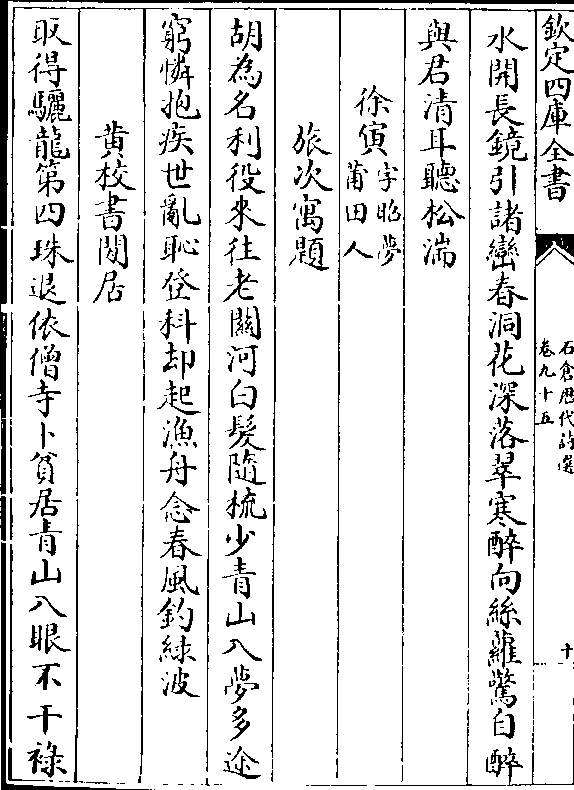 欽定四庫全書
石倉歷代詩選
卷九十五
十
水開長鏡引諸巒春洞花深落翠寒醉向絲蘿驚自醉
與君清耳聽松湍
徐寅字昭夢
莆田人
旅次寓題
胡為名利役來往老關河白髮隨梳少青山入夢多途
窮憐抱疾世亂恥登科却起漁舟念春風釣緑波
黄校書閒居
取得驪龍第四珠退依僧寺卜貧居青山入眼不干祿